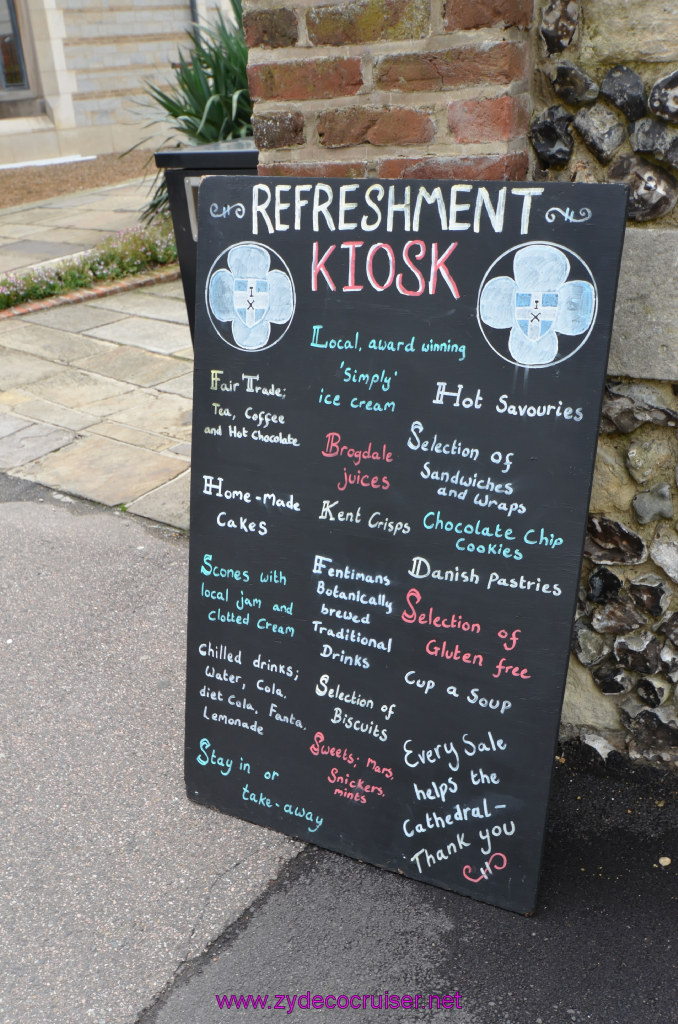 REFRESHMENT
KIOSK
I
X
I
X
Local, award winning
'Simply'
ice cream
Fair Trade;
Tea, Coffee
and Hot Chocolate
Home-Made
Cakes
Scones with
local jam and
Clotted Cream
Chilled drinks;
Water, Cola,
diet Cola, Fanta,
Lemonade
Stay in or
take-away
Brogdale
juices
Kent Crisps
Fentimans
Botanically
brewed
Traditional
Drinks
Selection of
Biscuits
Sweets; Mars,
Snickers,
mints
Hot Savouries
Selection of
Sandwiches
and Wraps
Chocolate Chip
Cookies
Danish Pastries
Selection of
Gluten free
Cup a Soup
Every Sale
helps the
Cathedral-
Thank you
www.zydecocruiser.net